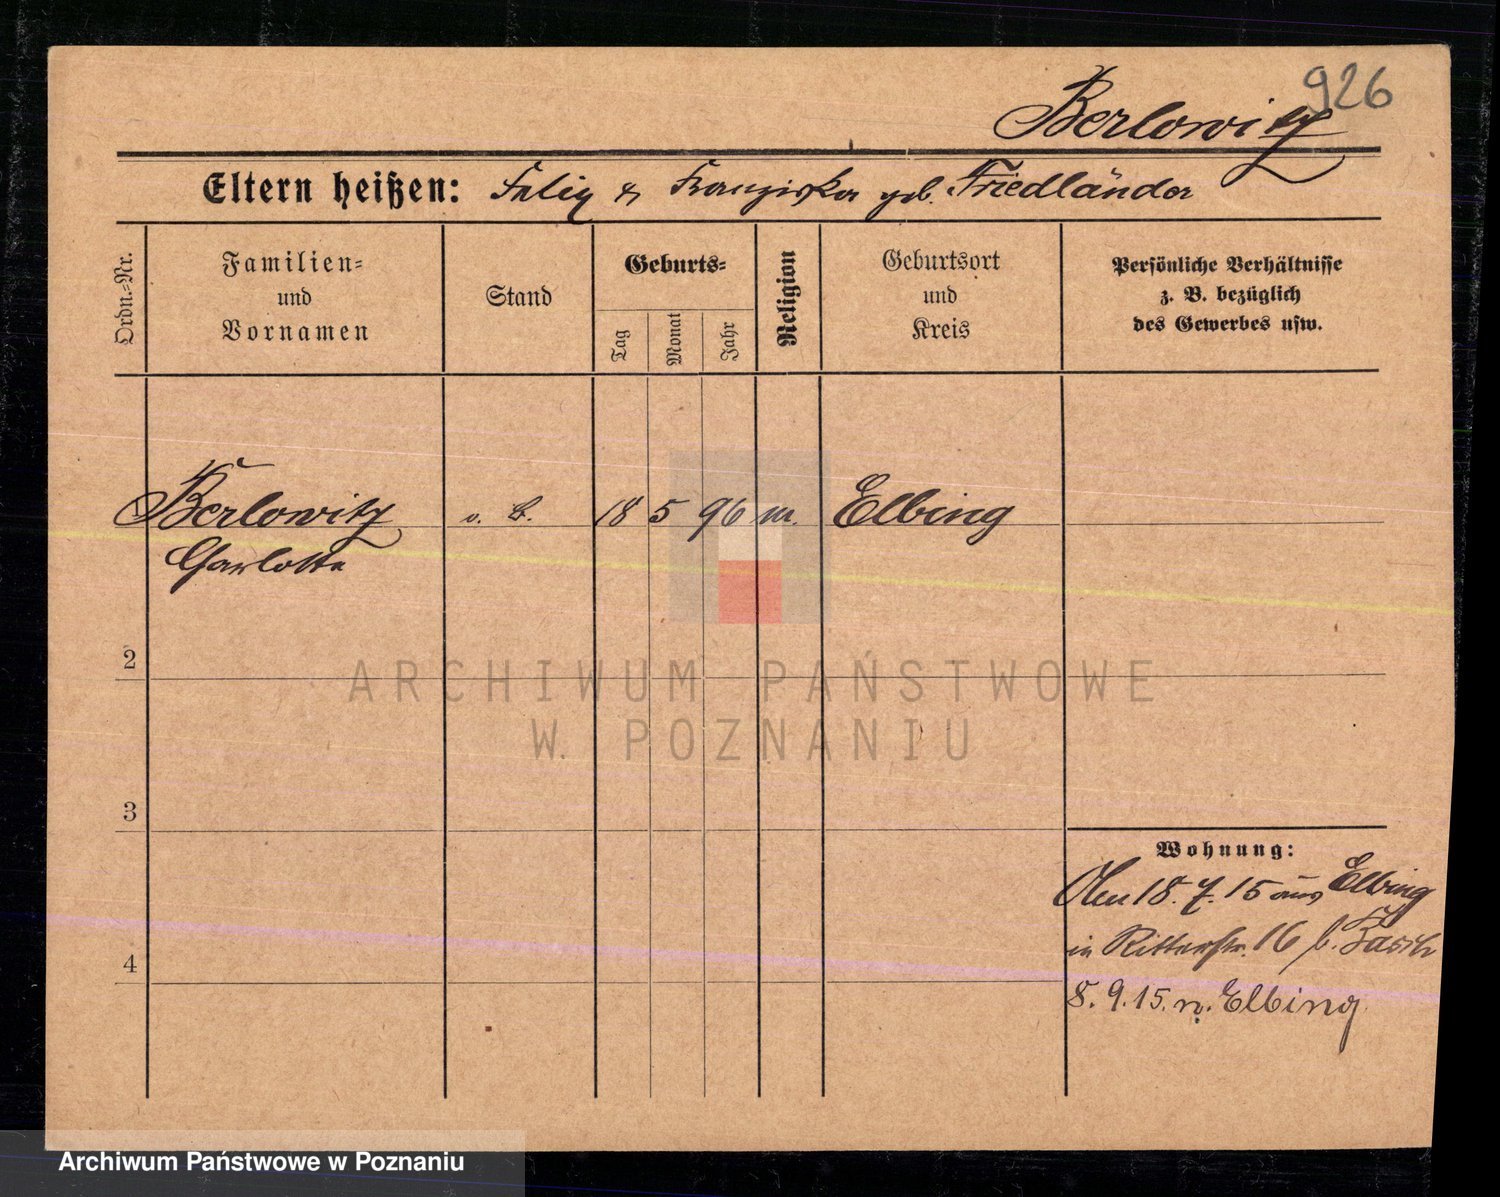 926
Berlowitz
Eltern heißen: Felix & Franziska geb. Friedländer
Ordn.=Nr.
Familien=
und
Vornamen
Stand
Geburts=
Tag
Monat
Jahr
Religion
Geburtsort
und
Kreis
Persönliche Verhältnisse
z. B. bezüglich
des Gewerbes usw.
Berlowitz o. B. 18 5 96 m. Elbing
Charlotte
2
ARCHIWUM PAŃSTWOWE
W POZNANIU
3
4
Wohnung:
18.7.15 aus Elbing
in Ritterstr. 16 b.
8.9.15. n. Elbing
Archiwum Państwowe w Poznaniu